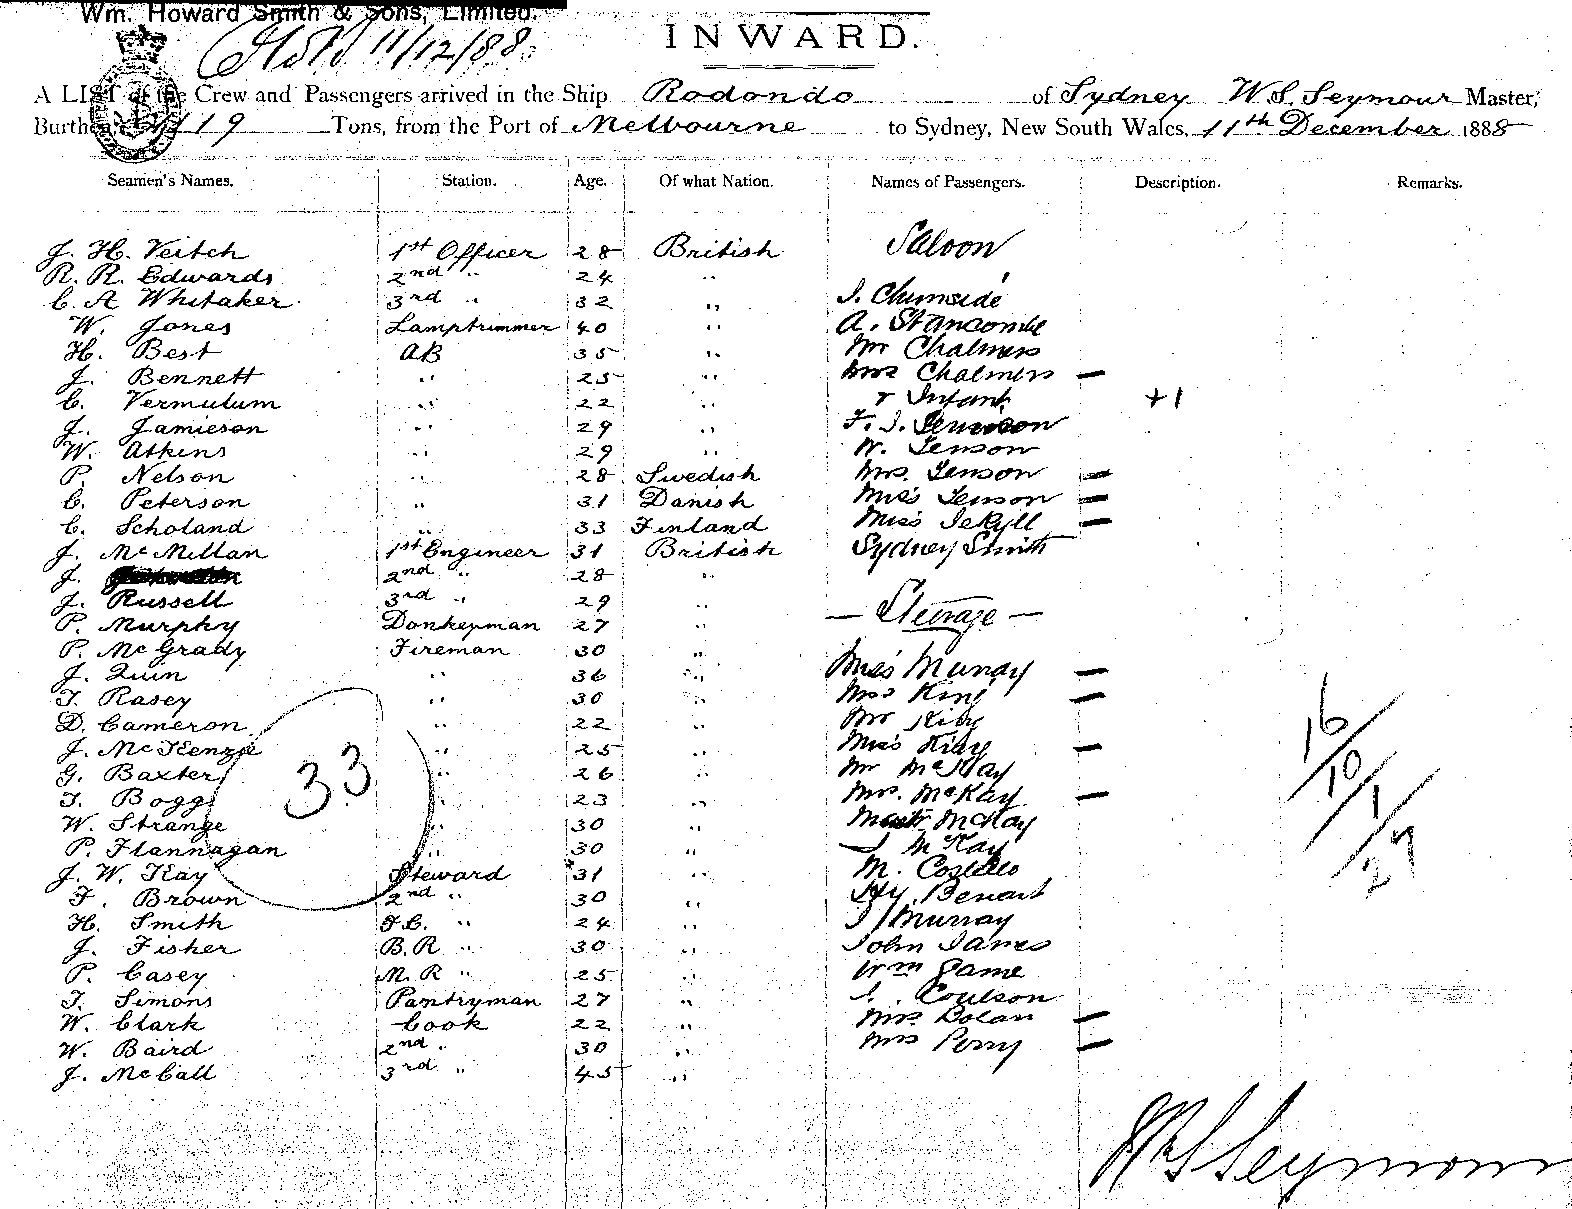 Wm. Howard Smith & Sons, Limited.
11/12/88
INWARD.
A LIST of the Crew and Passengers arrived in the Ship Rodondo of Sydney W.S. Seymour Master,
Burthen 1119 Tons, from the Port of Melbourne to Sydney, New South Wales, 11th December 1888
Seamen's Names. Station. Age. Of what Nation. Names of Passengers. Description. Remarks.
Saloon
J. H. Veitch 1st Officer 28 British
R. R. Edwards 2nd " 24 "
C. A Whitaker 3rd " 32 " J. Chirnside
W. Jones Lamptrimmer 40 " A. Stancombe
H. Best AB 35 " Mr Chalmers
J. Bennett " 25 " Mrs Chalmers —
C. Vermulum " 22 " & Infant +1
J. Jamieson " 29 " F. J.
W. Atkins " 29 " W. Jenson
P. Nelson " 28 Swedish Mrs. Jenson —
C. Peterson " 31 Danish Miss Jenson —
C. Scholand " 33 Finland Miss Jekyll —
J. McMillan 1st Engineer 31 British Sydney Smith
J. 2nd " 28 "
J. Russell 3rd " 29 " — Steerage —
P. Murphy Donkeyman 27 "
P. McGrady Fireman 30 "
J. Quin " 36 " Miss Murray —
T. Rasey " 30 " Mrs King —
D. Cameron " 22 " Mr
J. McKenzie " 25 " Miss —
G. Baxter " 26 " Mr McKay
T. Bogg " 23 " Mrs. McKay —
W. Strange " 30 " McKay
P. Flannagan " 30 " J McKay
J. W. Kay Steward 31 " M. Costello
F. Brown 2nd " 30 " Hy. Benout
H. Smith F.C. " 24 " J Murray
J. Fisher B.R " 30 " John James
P. Casey M.R " 25 " Wm Game
T. Simons Pantryman 27 " J. Coulson
W. Clark Cook 22 " Mrs Dolan —
W. Baird 2nd " 30 " Mrs Perry —
J. McCall 3rd " 45 "
33
16/10/1/27
W.S Seymour